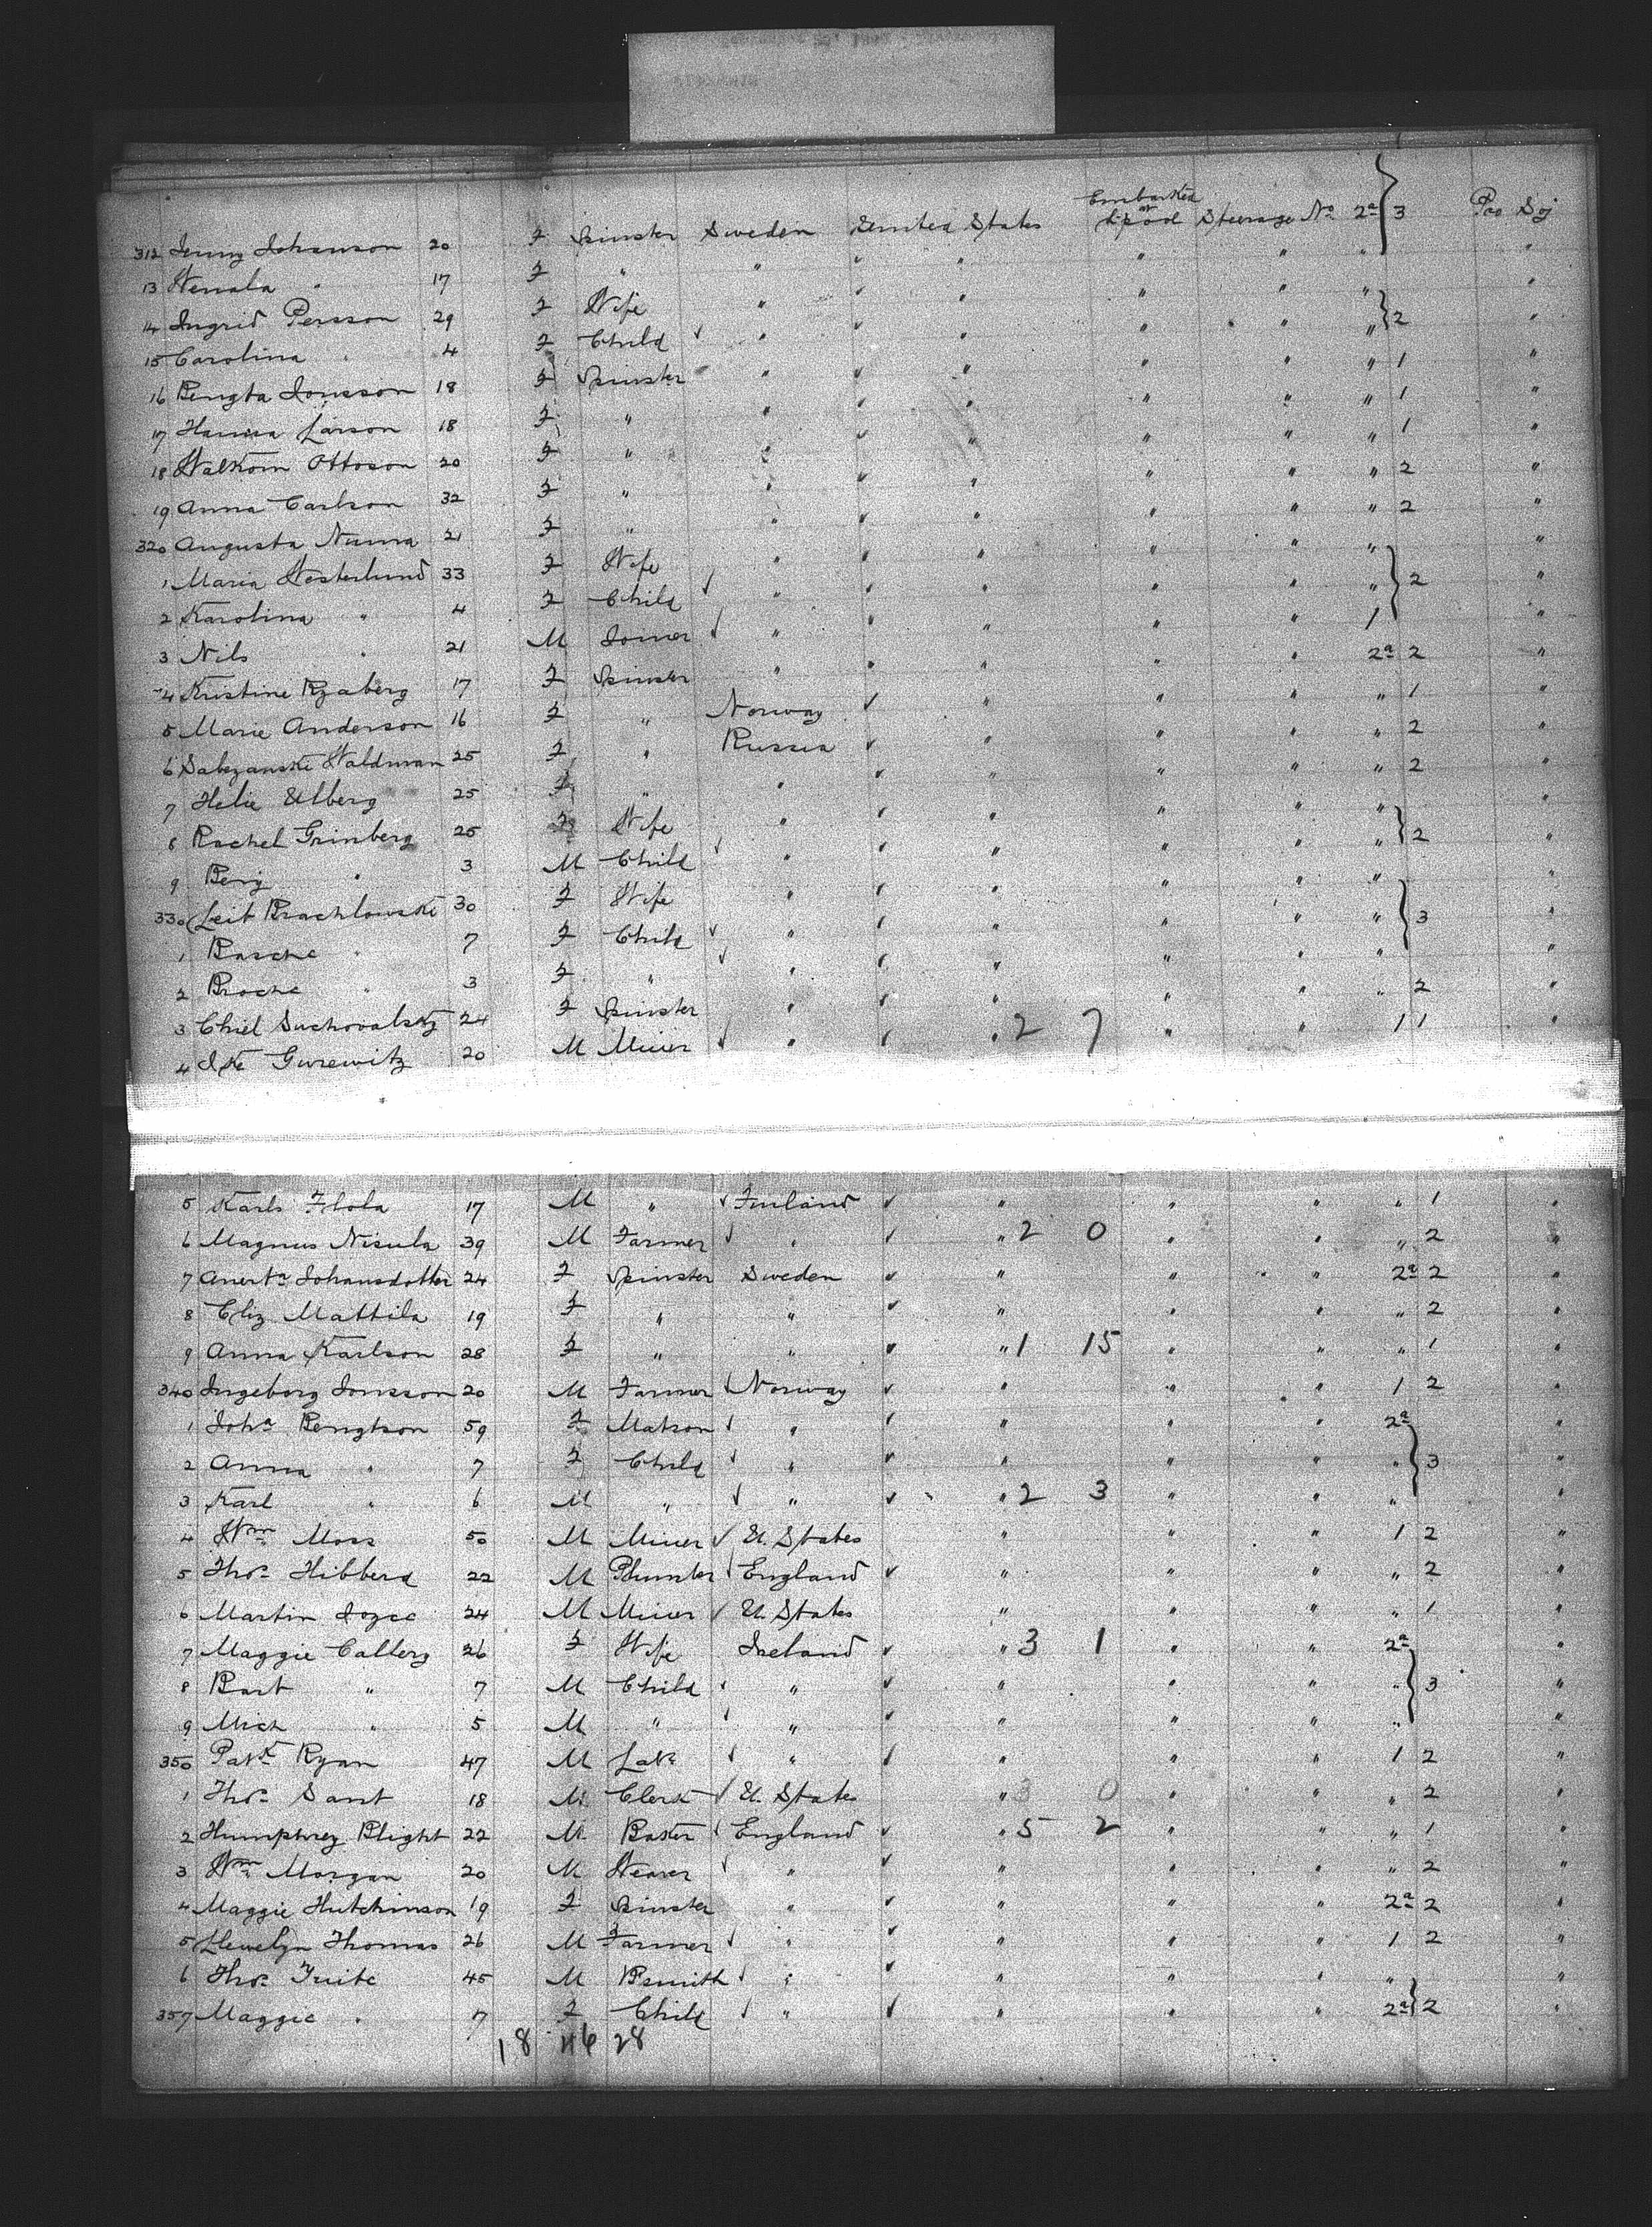 312 Jenny Johanson 20 F Spinster Sweden United States Embarked at L'pool Steerage No 2a 3 Pro Soj
13 " 17 F " " " " " " " "
14 Ingrid Persson 29 F Wife " " " " " " 2 "
15 Carolina " 4 F Child " " " " " " "
16 Bengta Jonsson 18 F Spinster " " " " " " 1 "
17 Hanna Larson 18 F " " " " " " " 1 "
18 Ottoson 20 F " " " " " " " 1 "
19 Anna Carlson 32 F " " " " " " " 2 "
320 Augusta Numa 21 F " " " " " " " 2 "
1 Maria Westerlund 33 F Wife " " " " " " "
2 Karolina " 4 F Child " " " " " " 2 "
3 Nils " 21 M Joiner " " " " " 1 "
4 Kristine 17 F Spinster " " " " " 2a 2 "
5 Marie Anderson 16 F " Norway " " " " 1 "
6 Waldman 25 F " Russia " " " " 2 "
7 Helie Elberg 25 F " " " " " " " 2 "
8 Rachel Grinberg 25 F Wife " " " " " " "
9 Benj " 3 M Child " " " " " " 2 "
330 Leib Brachlowski 30 F Wife " " " " " " "
1 Basche " 7 F Child " " " " " " 3 "
2 Broche " 3 F " " " " " " " "
3 Chiel 24 F Spinster " " " " " " 2 "
4 Gurewitz 20 M Miner " " " 2 7 " " 1 1 "
5 Karls Flola 17 M " Finland " " " " 1 "
6 Magnus Nisula 39 M Farmer " " 2 0 " " " 2 "
7 Johansdotter 24 F Spinster Sweden " " " 2a 2 "
8 Eliz Mattila 19 F " " " " " " 2 "
9 Anna Karlson 28 F " " " 1 15 " " " 1 "
340 Ingeborg Jonsson 20 M Farmer Norway " " " 1 2 "
1 Joha Bengtson 59 F Matron " " " " 2a "
2 Anna " 7 F Child " " " " " 3 "
3 Karl " 6 M " " " 2 3 " " " "
4 Wm Moss 50 M Miner U. States " " " 1 2 "
5 Thos Hibberd 22 M Plumber England " " " " 2 "
6 Martin Joyce 24 M Miner U. States " " " " 1 "
7 Maggie Callery 26 F Wife Ireland " 3 1 " " 2a "
8 Bart " 7 M Child " " " " " 3 "
9 Mich " 5 M " " " " " " "
350 Patk Ryan 47 M Labr " " " " 1 2 "
1 Thos Sant 18 M Clerk U. States " 3 0 " " " 2 "
2 Humphrey Blight 22 M Baker England " 5 2 " " " 1 "
3 Wm Morgan 20 M Weaver " " " " " 2 "
4 Maggie Hutchinson 19 F Spinster " " " " 2a 2 "
5 Llewelyn Thomas 26 M Farmer " " " " 1 2 "
6 Thos Tuite 45 M Bsmith " " " " " "
357 Maggie " 7 F Child " " " " 2a 2 "
18 46 28